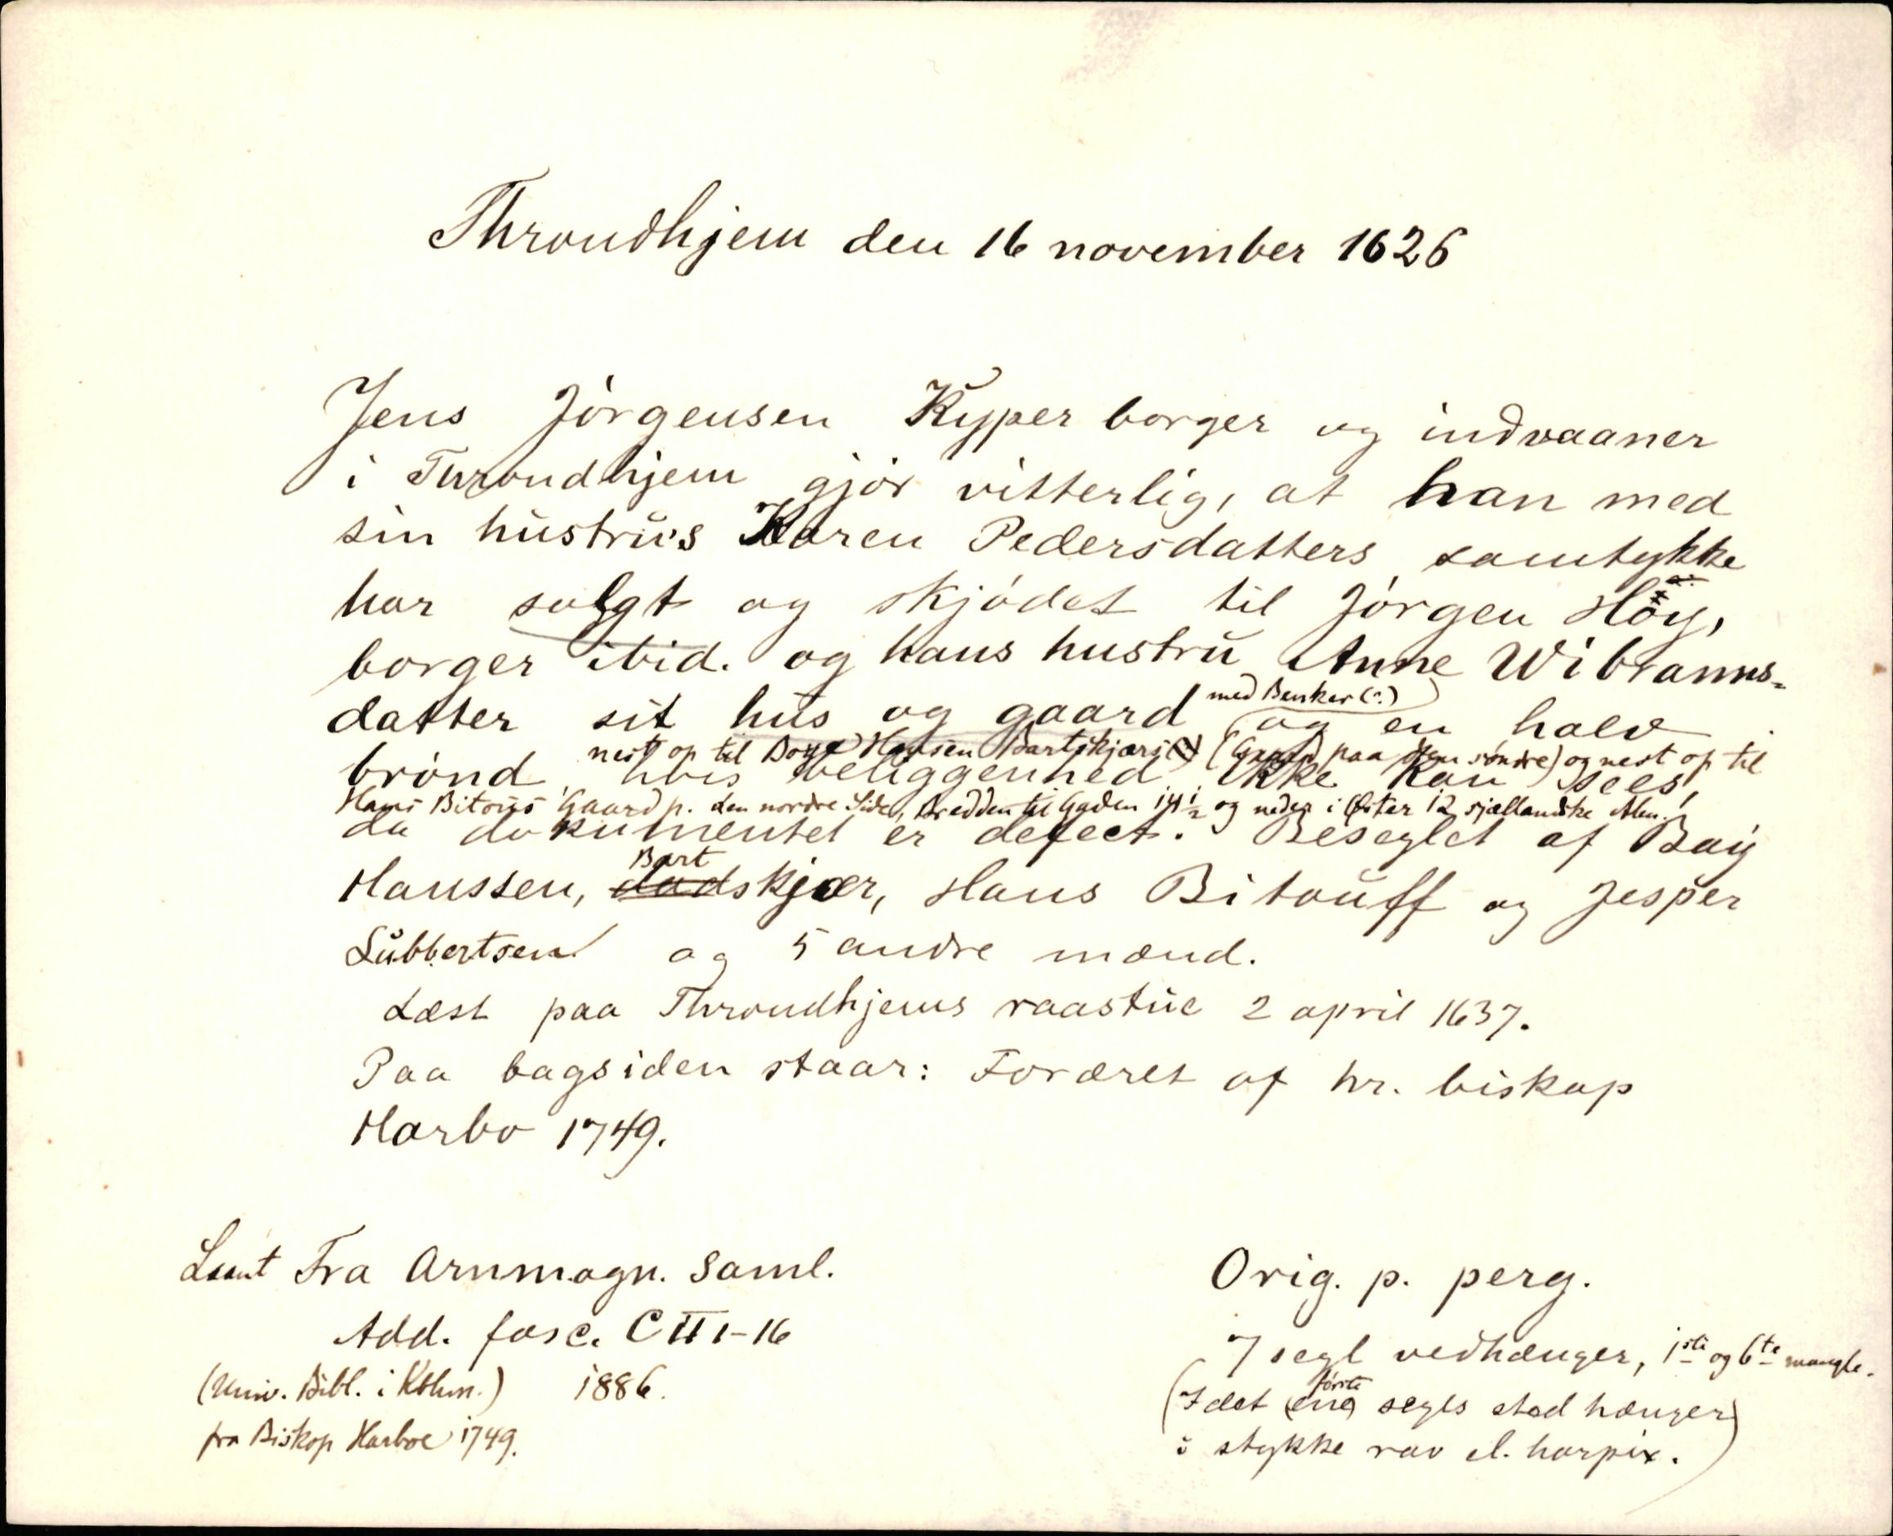 Throndhjem den 16 november 1626
Jens Jörgensen Kyper borger og indvaaner
i Throndhjem gjör vitterlig, at han med
sin hustrus Karen Pedersdatters samtykke
har solgt og skjödet til Jörgen Höy,
borger ibid. og hans hustru Anne Wibranns-
datter sit hus og gaard og en halv
med Benker (?)
nest op til Boye Hansen Bartskjærs (Gaard paa den söndre) og nest op til
brönd hvis beliggenhed ikke kan sees,
Hans Bitous Gaard p. den nordre Side, Bredden til Gaden 14 1/2 og neder i Öster 12 sjællandske Alen.
da dokumentet er defect. Beseglet af Boy
Bart
Hanssen, dadskjær, Hans Bitouff og Jesper
Lübbertsen og 5 andre mænd.
Læst paa Throndhjems raastue 2 april 1637.
Paa bagsiden staar: Foræret af hr. biskop
Harbo 1749.
Laant Fra Arnmagn. Saml.
Add. fasc. C II 1-16
(Univ. Bibl. i Kbhvn.) 1886.
fra Biskop Harboe 1749.
Orig. p. perg.
7 segl vedhænger, 1ste og 6te mangle.
förste
(I det (ene) segls sted hænger
i stykke rav el. harpix.)